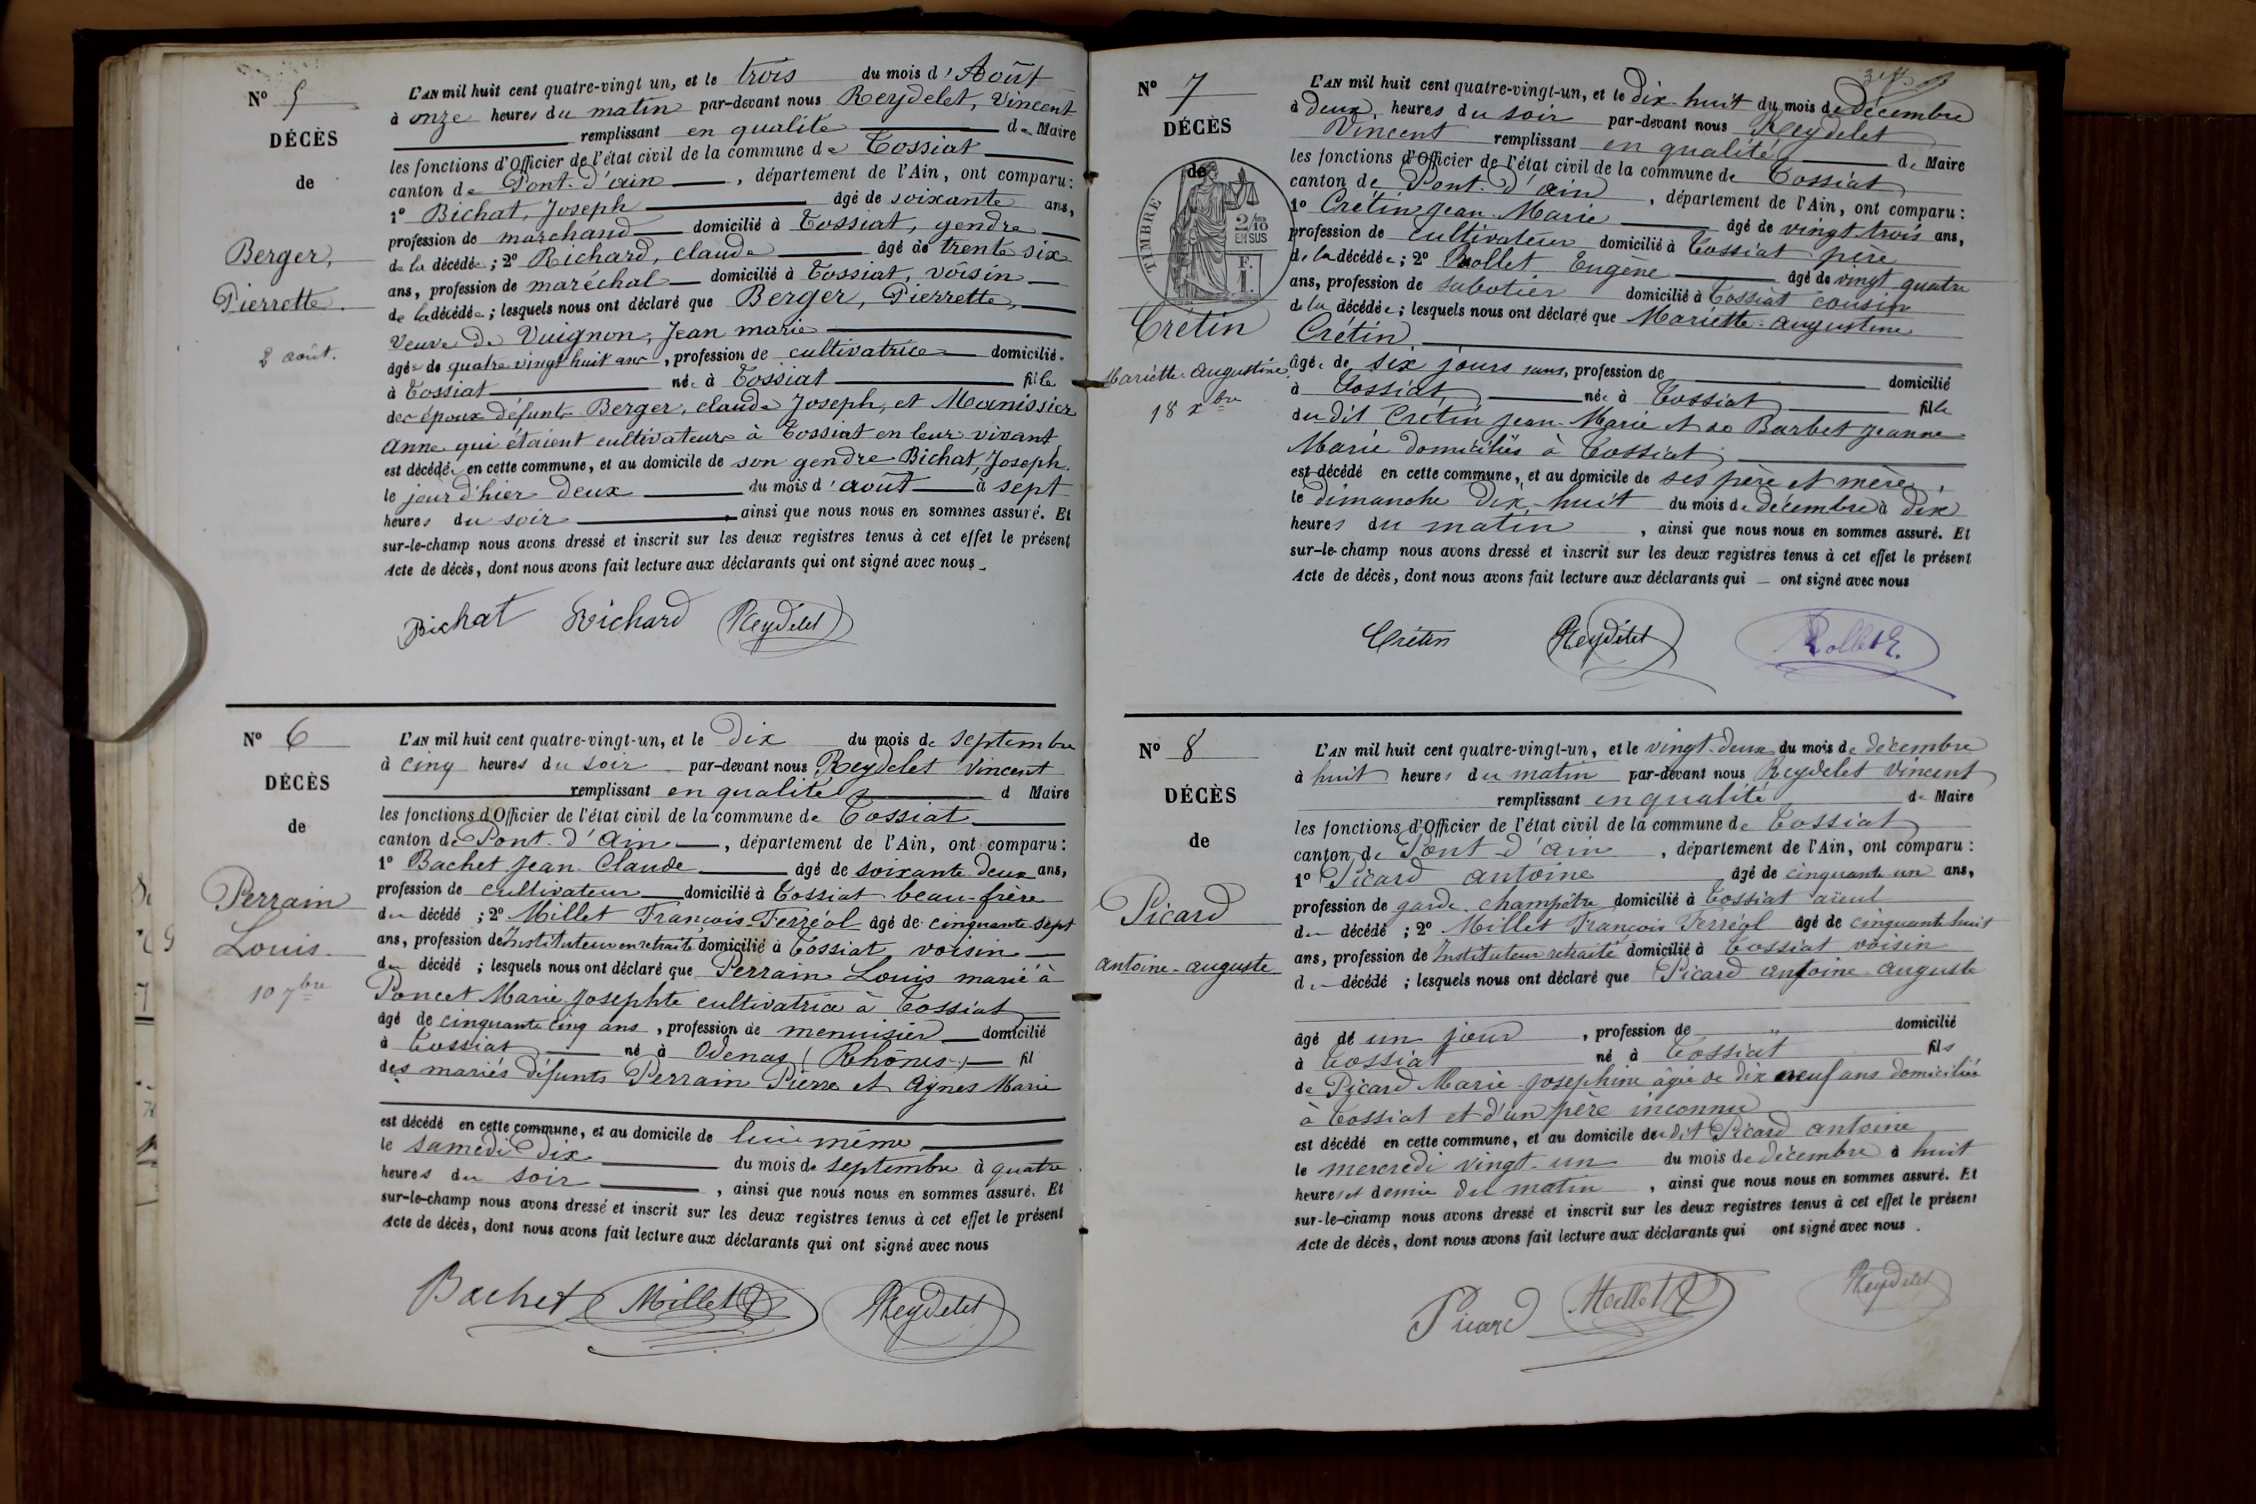 N° 5
DÉCÈS
de
Berger,
Pierrette.
2 août.
L'AN mil huit cent quatre-vingt un, et le trois du mois d'Août
à onze heures du matin par-devant nous Reydelet, Vincent
remplissant en qualité de Maire
les fonctions d'Officier de l'état civil de la commune de Tossiat
canton de Pont-d'ain, département de l'Ain, ont comparu :
1° Bichat, Joseph âgé de soixante ans,
profession de marchand domicilié à Tossiat, gendre
de la décédée ; 2° Richard, claude âgé de trente six
ans, profession de maréchal domicilié à Tossiat, voisin
de la décédée ; lesquels nous ont déclaré que Berger, Pierrette,
veuve de Vuignon, Jean marie
âgée de quatre vingt huit ans, profession de cultivatrice domicilié.
à Tossiat née à Tossiat fille
des époux défunts Berger, claude Joseph, et Monissier
Anne qui étaient cultivateurs à Tossiat en leur vivant
est décédée en cette commune, et au domicile de son gendre Bichat, Joseph.
le jour d'hier deux du mois d'août à sept
heures du soir, ainsi que nous nous en sommes assuré. Et
sur-le-champ nous avons dressé et inscrit sur les deux registres tenus à cet effet le présent
Acte de décès, dont nous avons fait lecture aux déclarants qui ont signé avec nous
Bichat Richard Reydelet
N° 6
DÉCÈS
de
Perrain
Louis.
10 7bre
L'AN mil huit cent quatre-vingt-un, et le Dix du mois de septembre
à cinq heures du soir par-devant nous Reydelet Vincent
remplissant en qualité d Maire
les fonctions d'Officier de l'état civil de la commune de Tossiat
canton de Pont-d'Ain, département de l'Ain, ont comparu :
1° Bachet Jean Claude âgé de soixante deux ans,
profession de cultivateur domicilié à Tossiat beau-frère
du décédé ; 2° Millet François-Ferréol âgé de cinquante-sept
ans, profession de Instituteur en retraite domicilié à Tossiat voisin
du décédé ; lesquels nous ont déclaré que Perrain Louis marié à
Poncet Marie-Josephte cultivatrice à Tossiat
âgé de cinquante cinq ans, profession de menuisier domicilié
à Tossiat né à Odenas (Rhône) fil
des mariés défunts Perrain Pierre et Aynes Marie
est décédé en cette commune, et au domicile de lui même
le samedi Dix du mois de septembre à quatre
heures du soir, ainsi que nous nous en sommes assuré. Et
sur-le-champ nous avons dressé et inscrit sur les deux registres tenus à cet effet le présent
Acte de décès, dont nous avons fait lecture aux déclarants qui ont signé avec nous
Bachet Millet Reydelet
N° 7
DÉCÈS
de
TIMBRE
2/10
EN SUS
F.
1.
Crétin
Mariette-Augustine
18 xbre
L'AN mil huit cent quatre-vingt-un, et le dix-huit du mois de décembre
à deux heures du soir par-devant nous Reydelet
Vincent remplissant en qualité de Maire
les fonctions d'Officier de l'état civil de la commune de Tossiat
canton de Pont-d'ain, département de l'Ain, ont comparu :
1° Crétin Jean-Marie âgé de vingt-trois ans,
profession de cultivateur domicilié à Tossiat père
de la décédée ; 2° Rollet Eugène âgé de vingt quatre
ans, profession de sabotier domicilié à Tossiat cousin
de la décédée ; lesquels nous ont déclaré que Mariette-Augustine
Crétin
âgée de six jours sans, profession de domicilié
à Tossiat, née à Tossiat fille
du dit Crétin Jean-Marie et de Barbet Jeanne
Marie domiciliés à Tossiat
est décédé en cette commune, et au domicile de ses père et mère,
le dimanche dix-huit du mois de décembre à dix
heures du matin, ainsi que nous nous en sommes assuré. Et
sur-le-champ nous avons dressé et inscrit sur les deux registres tenus à cet effet le présent
Acte de décès, dont nous avons fait lecture aux déclarants qui ont signé avec nous
Crétin Reydelet Rollet E.
N° 8
DÉCÈS
de
Picard
Antoine-auguste
L'AN mil huit cent quatre-vingt-un, et le vingt-deux du mois de décembre
à huit heures du matin par-devant nous Reydelet Vincent
remplissant en qualité de Maire
les fonctions d'Officier de l'état civil de la commune de Tossiat
canton de Pont-d'ain, département de l'Ain, ont comparu :
1° Picard Antoine âgé de cinquante un ans,
profession de garde champêtre domicilié à Tossiat aïeul
du décédé ; 2° Millet François Ferréol âgé de cinquante huit
ans, profession de Instituteur retraité domicilié à Tossiat voisin
du décédé ; lesquels nous ont déclaré que Picard antoine-auguste
âgé de un jour, profession de " domicilié
à Tossiat né à Tossiat fils
de Picard Marie-Josephine âgée de dix neuf ans domiciliée
à Tossiat et d'un père inconnu
est décédé en cette commune, et au domicile du dit Picard antoine
le mercredi vingt-un du mois de décembre à huit
heures et demie du matin, ainsi que nous nous en sommes assuré. Et
sur-le-champ nous avons dressé et inscrit sur les deux registres tenus à cet effet le présent
Acte de décès, dont nous avons fait lecture aux déclarants qui ont signé avec nous.
Picard Millet Reydelet